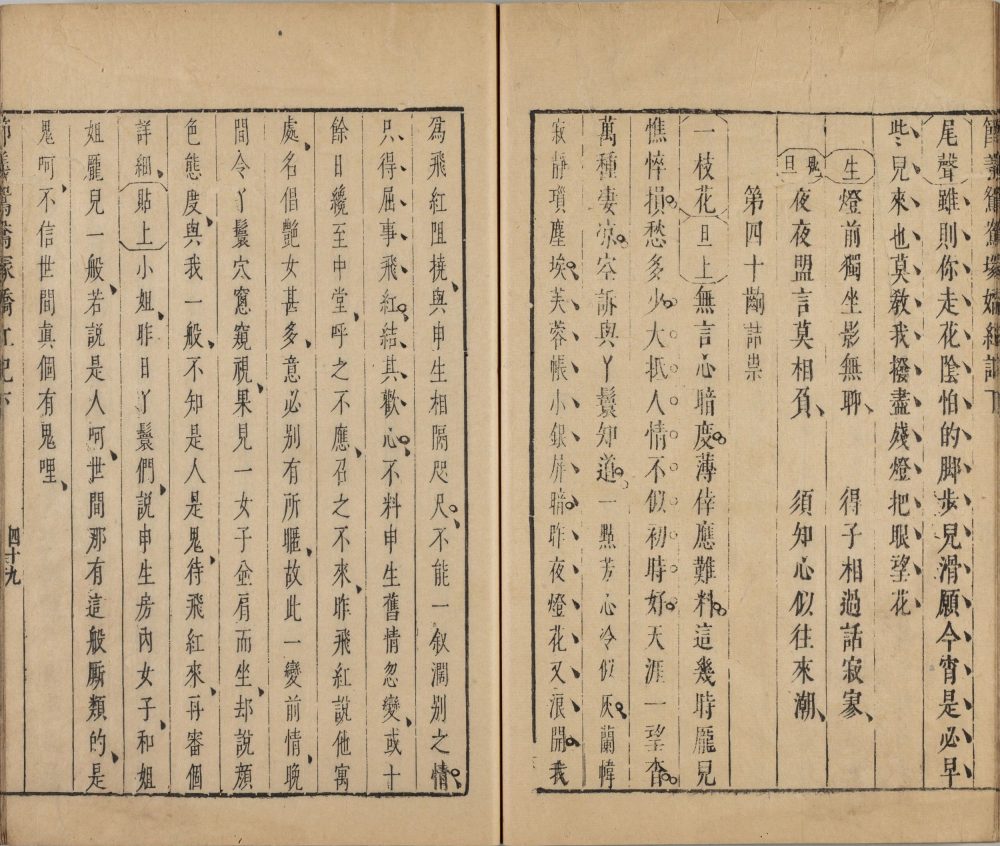 尾聲雖則你走花陰怕的脚步兒滑願今宵是必早
些兒來也莫敎我撥盡殘燈把眼望花
生燈前獨坐影無聊 得子相過話寂寥
旦夜夜盟言莫相負 須知心似往來潮
第四十齣詰祟
一枝花旦上無言心暗度薄倖應難料這幾時龎兒
憔悴損愁多少大抵人情不似初時好天涯一望杳
萬種凄凉空訴與丫鬟知道一點芳心冷似灰蘭幃
寂靜瑣塵埃芙蓉帳小銀屏暗昨夜燈花又浪開我
爲飛紅阻撓與申生相隔咫尺不能一叙濶别之情
只得屈事飛紅結其歡心不料申生舊情忽變或十
餘日纔至中堂呼之不應召之不來昨飛紅說他寓
處名倡艷女甚多意必别有所暱故此一變前情晚
間令丫鬟穴窻窺視果見一女子並肩而坐却說顔
色態度與我一般不知是人是鬼待飛紅來再審個
詳細貼上小姐昨日丫鬟們說申生房內女子和姐
姐龎兒一般若說是人呵世間那有這般厮類的是
鬼呵不信世間眞個有鬼哩
四十九